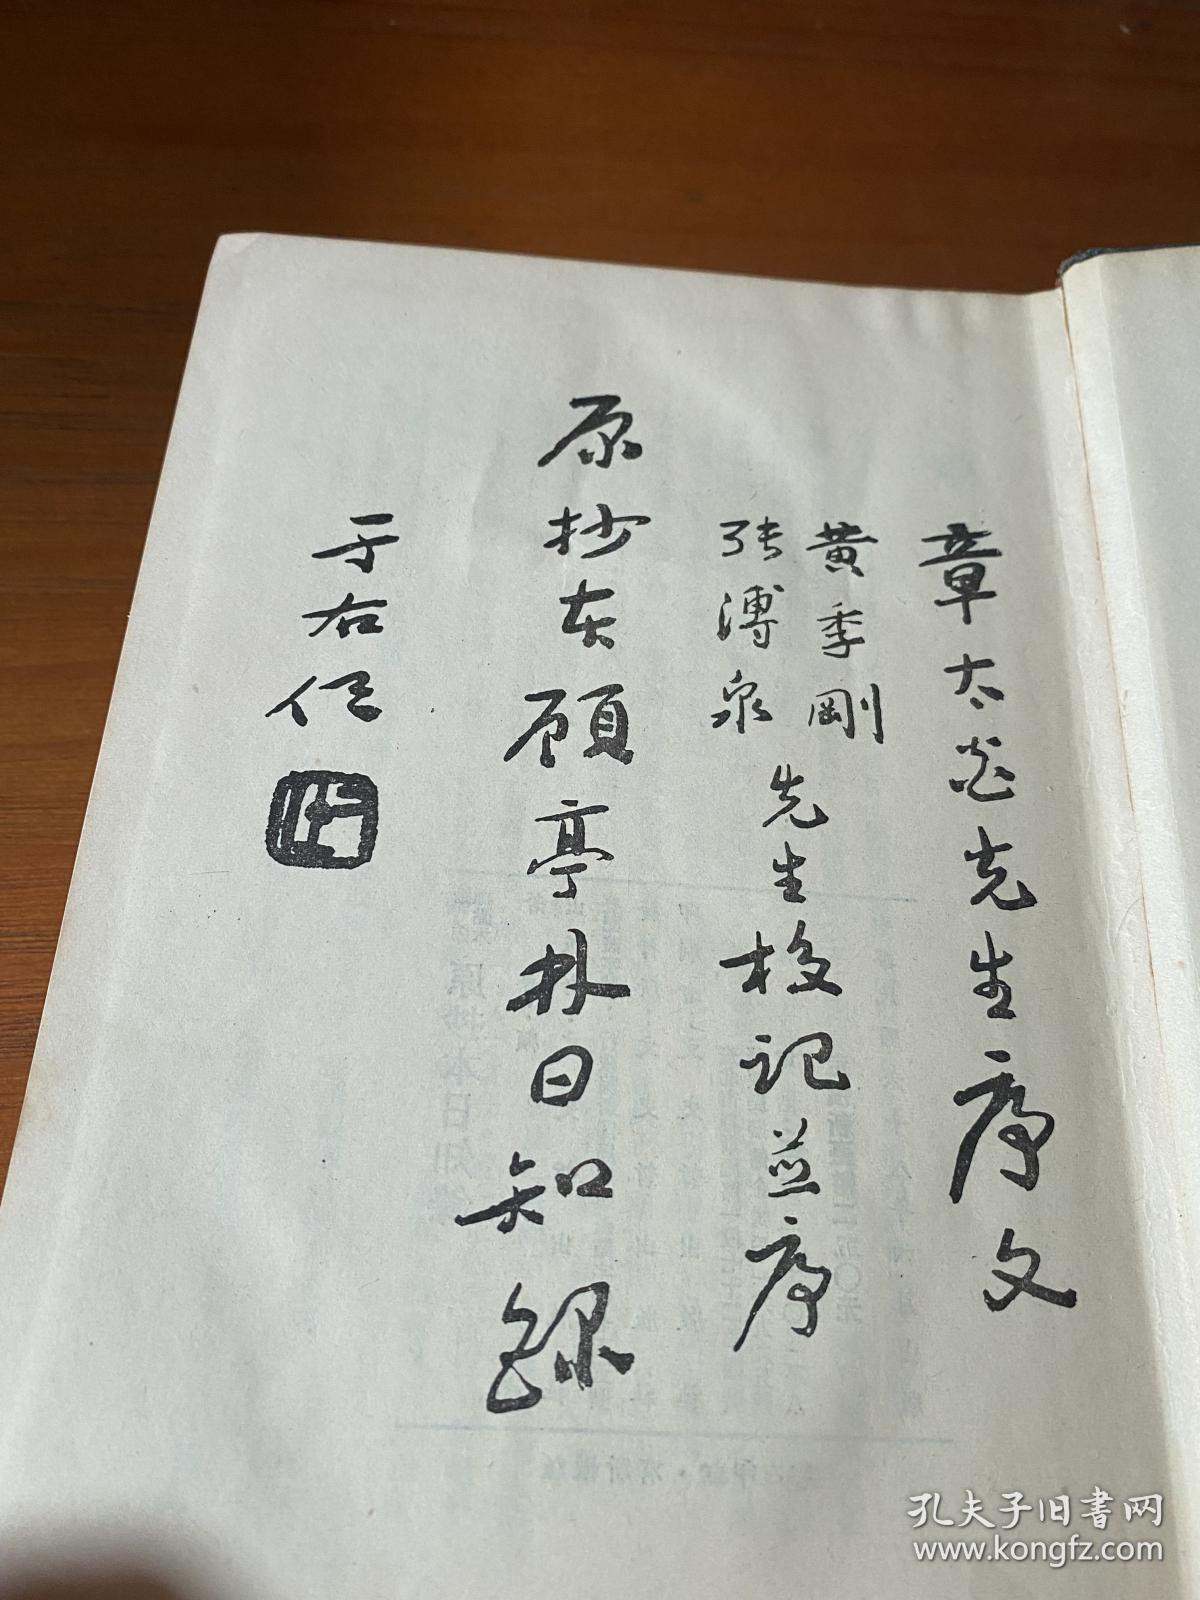 章太炎先生序文
黄季剛
張溥泉
先生校記並序
原抄本顧亭林日知錄
于右任
孔夫子旧书网
www.kongfz.com